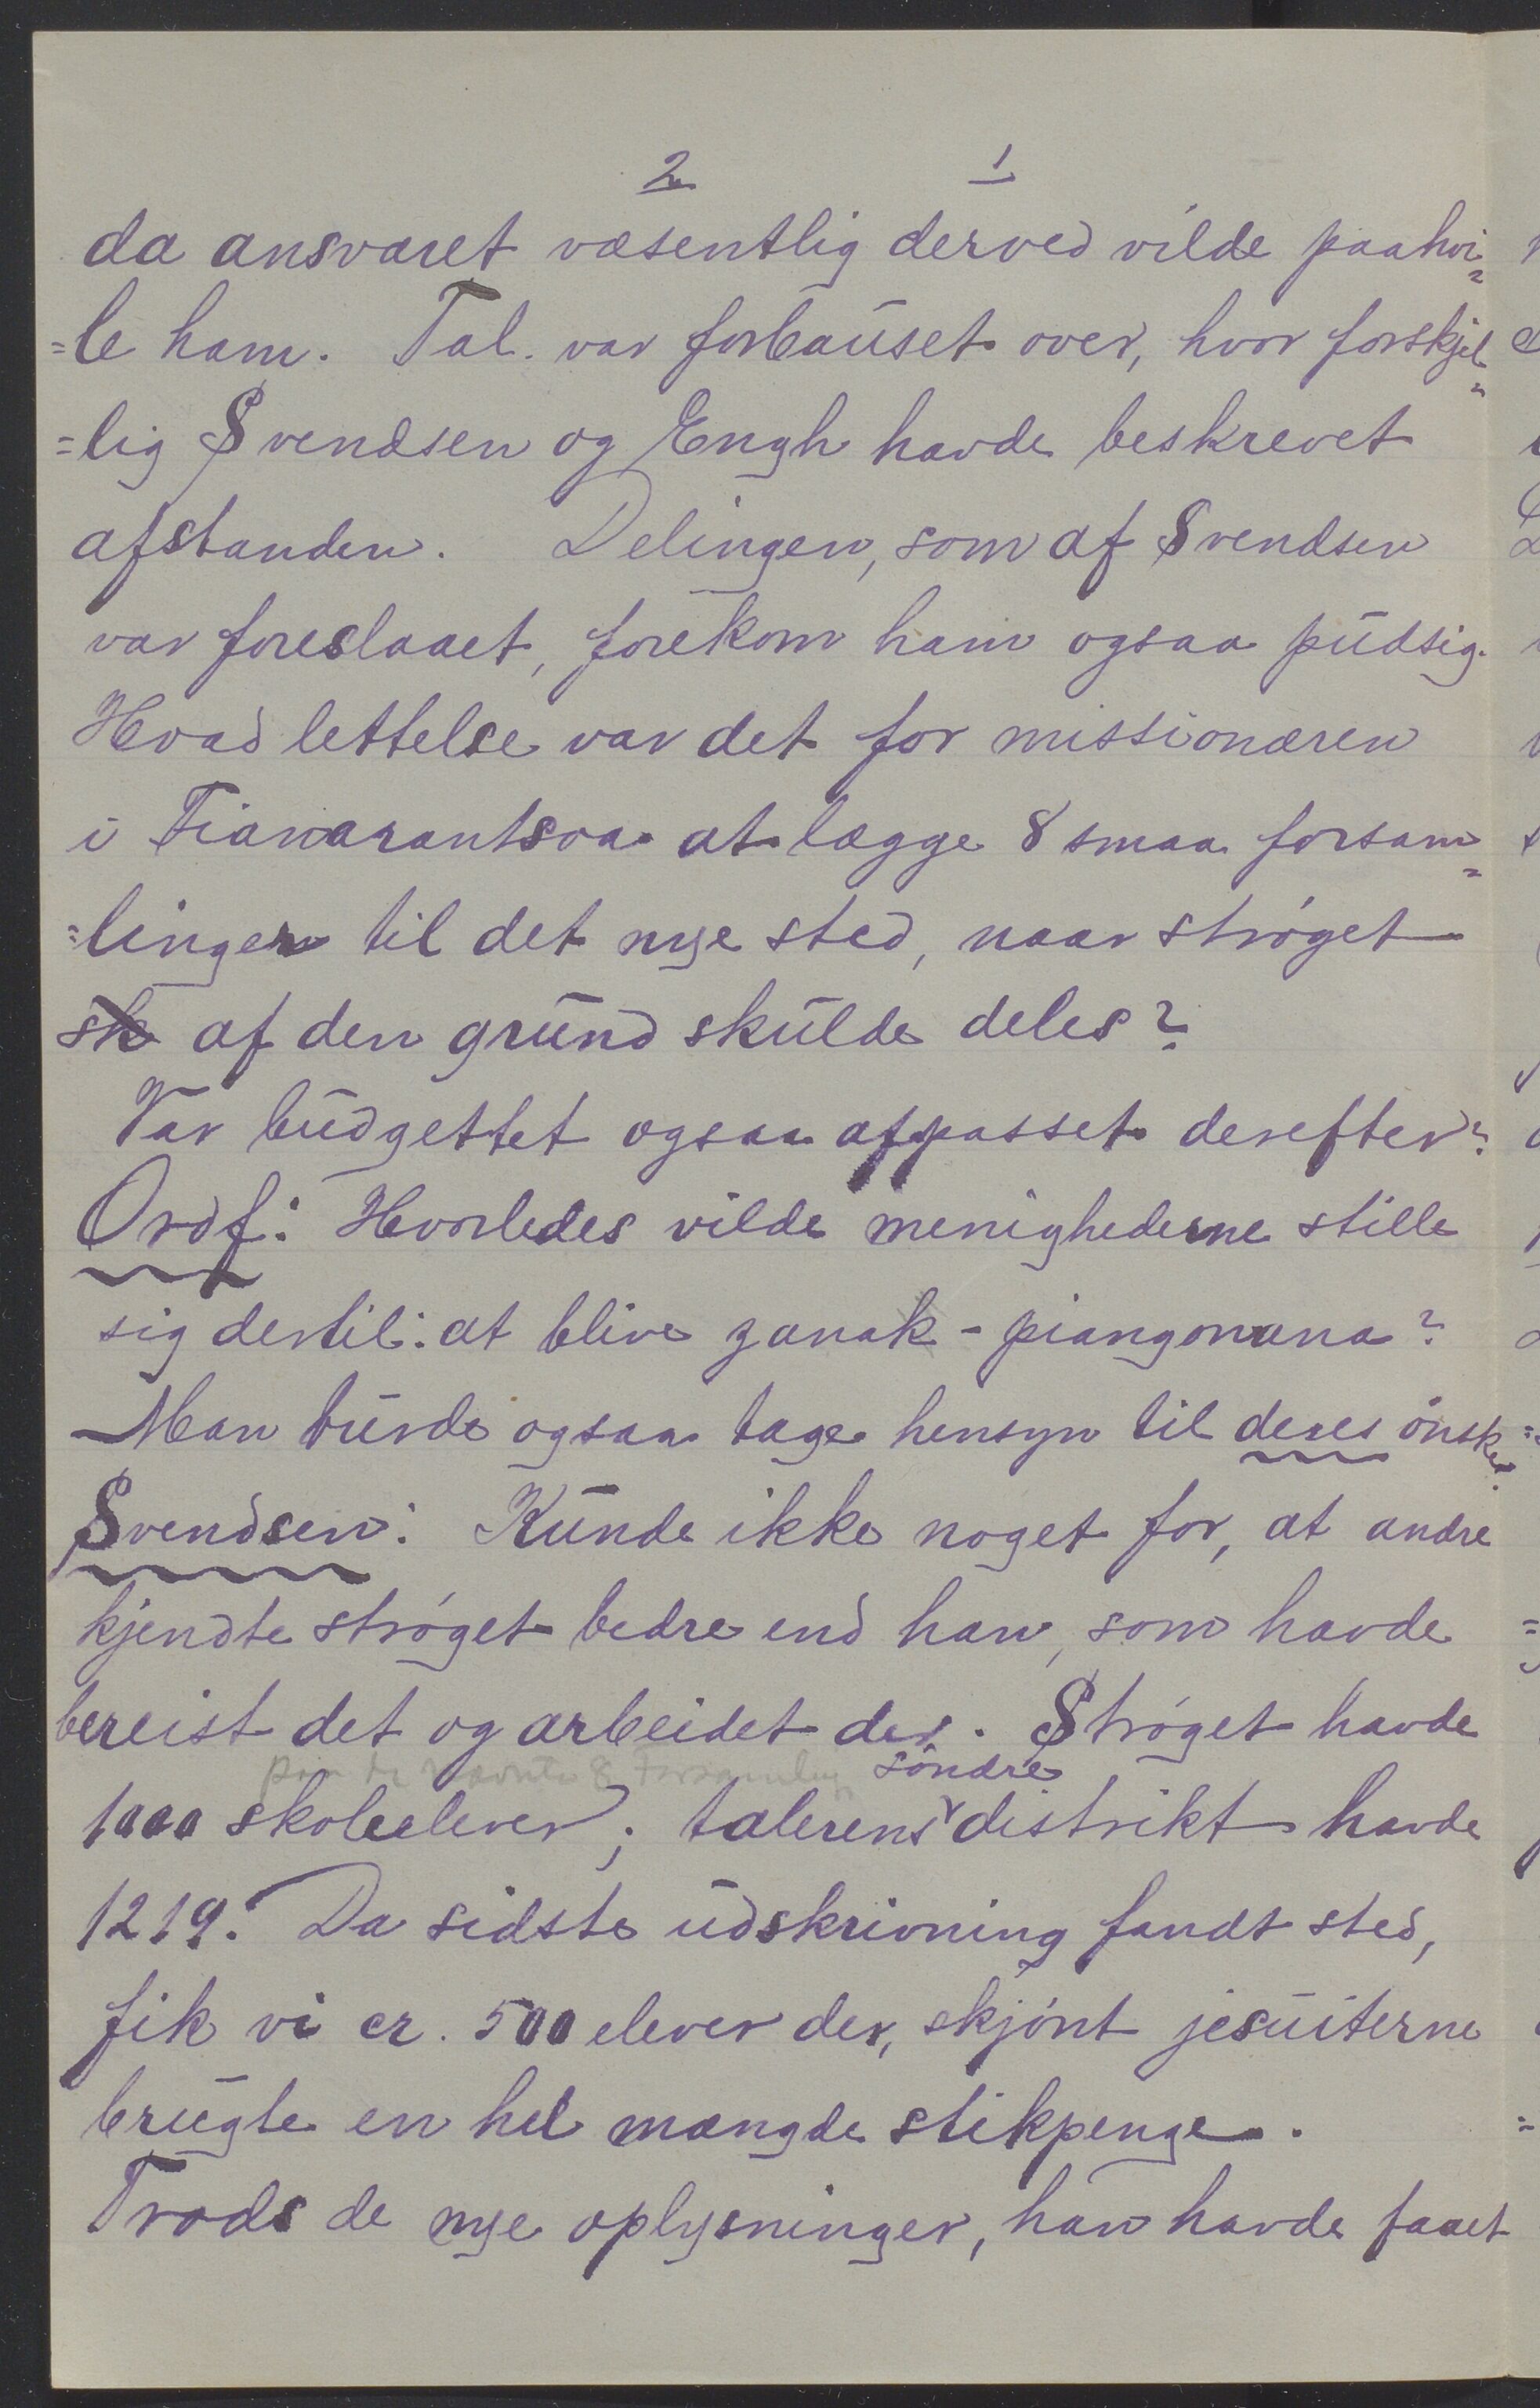 2 1
da ansvaret væsentlig derved vilde paahvi=
=le ham. Tal. var forbauset over, hvor forskjel=
=lig Svendsen og Engh havde beskrevet
afstanden. Delingen, som af Svendsen
var foreslaaet, forekom ham ogsaa pudsig.
Hvad lettelse var det for missionæren
i Fianarantsoa at lægge 8 smaa forsam=
=linger til det nye sted, naar strøget
sk af den grund skulde deles?
Var budgettet ogsaa afpasset derefter?
Ordf: Hvorledes vilde menighederne stille
sig dertil: at blive zanak-piangonana?
Man burde ogsaa tage hensyn til deres ønsker.
Svendsen: Kunde ikke noget for, at andre
kjendte strøget bedre end han, som havde
bereist det og arbeidet der. Strøget havde
paa de nævnte 8 Forsamling søndre
1000 skoleelever; talerens distrikt havde
1219. Da sidste udskrivning fandt sted,
fik vi cr. 500 elever der, skjønt jesuiterne
brugte en hel mængde stikpenge.
Trods de nye oplysninger, han havde faaet